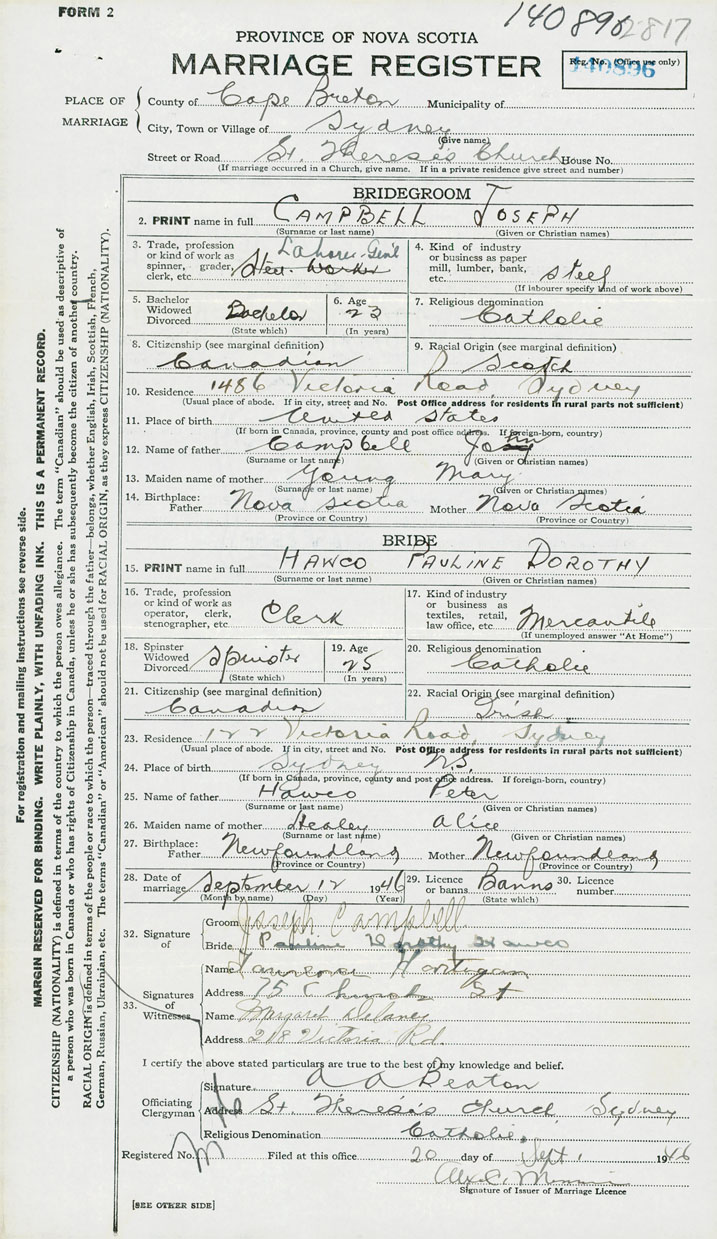 FORM 2
140896 2817
PROVINCE OF NOVA SCOTIA
MARRIAGE REGISTER
Reg. No. (Office use only)
140896
PLACE OF MARRIAGE
County of Cape Breton Municipality of
City, Town or Village of Sydney
(Give name)
Street or Road St. Theresa's Church House No.
(If marriage occurred in a Church, give name. If in a private residence give street and number)
BRIDEGROOM
2. PRINT name in full CAMPBELL JOSEPH
(Surname or last name) (Given or Christian names)
3. Trade, profession or kind of work as spinner, grader, clerk, etc. Labourer Gen'l Steel Worker
4. Kind of industry or business as paper mill, lumber, bank, etc. Steel
(If labourer specify kind of work above)
5. Bachelor Widowed Divorced Bachelor
(State which)
6. Age 23
(In years)
7. Religious denomination
Catholic
8. Citizenship (see marginal definition)
Canadian
9. Racial Origin (see marginal definition)
Scotch
10. Residence 1486 Victoria Road, Sydney
(Usual place of abode. If in city, street and No. Post Office address for residents in rural parts not sufficient)
11. Place of birth United States
(If born in Canada, province, county and post office address. If foreign-born, country)
12. Name of father Campbell
(Surname or last name) (Given or Christian names)
13. Maiden name of mother Young Mary
(Surname or last name) (Given or Christian names)
14. Birthplace: Father Nova Scotia Mother Nova Scotia
(Province or Country) (Province or Country)
BRIDE
15. PRINT name in full HAWCO PAULINE DOROTHY
(Surname or last name) (Given or Christian names)
16. Trade, profession or kind of work as operator, clerk, stenographer, etc Clerk
17. Kind of industry or business as textiles, retail, law office, etc Mercantile
(If unemployed answer "At Home")
18. Spinster Widowed Divorced Spinster
(State which)
19. Age 25
(In years)
20. Religious denomination
Catholic
21. Citizenship (see marginal definition)
Canadian
22. Racial Origin (see marginal definition)
Irish
23. Residence 122 Victoria Road, Sydney
(Usual place of abode. If in city, street and No. Post Office address for residents in rural parts not sufficient)
24. Place of birth Sydney N.S.
(If born in Canada, province, county and post office address. If foreign-born, country)
25. Name of father Hawco Peter
(Surname or last name) (Given or Christian names)
26. Maiden name of mother Healey Alice
(Surname or last name) (Given or Christian names)
27. Birthplace: Father Newfoundland Mother Newfoundland
(Province or Country) (Province or Country)
28. Date of marriage September 12 1946 29. Licence or banns Banns 30. Licence number
(Month by name) (Day) (Year) (State which)
32. Signature of
Groom Joseph Campbell
Bride Pauline Dorothy Hawco
33. Signatures of Witnesses
Name Hartigan
Address 75 Church St
Name Margaret Delaney
Address 218 Victoria Rd.
I certify the above stated particulars are true to the best of my knowledge and belief.
Officiating Clergyman
Signature A A Beaton
Address St. Theresa's Church, Sydney
Religious Denomination Catholic.
Registered No. Filed at this office 20 day of Sept. 1946
Alex C.
Signature of Issuer of Marriage Licence
[SEE OTHER SIDE]
For registration and mailing instructions see reverse side.
MARGIN RESERVED FOR BINDING. WRITE PLAINLY, WITH UNFADING INK. THIS IS A PERMANENT RECORD.
CITIZENSHIP (NATIONALITY) is defined in terms of the country to which the person owes allegiance. The term "Canadian" should be used as descriptive of
a person who was born in Canada or who has rights of Citizenship in Canada, unless he or she has subsequently become the citizen of another country.
RACIAL ORIGIN is defined in terms of the people or race to which the person—traced through the father—belongs, whether English, Irish, Scottish, French,
German, Russian, Ukrainian, etc. The terms "Canadian" or "American" should not be used for RACIAL ORIGIN, as they express CITIZENSHIP (NATIONALITY).